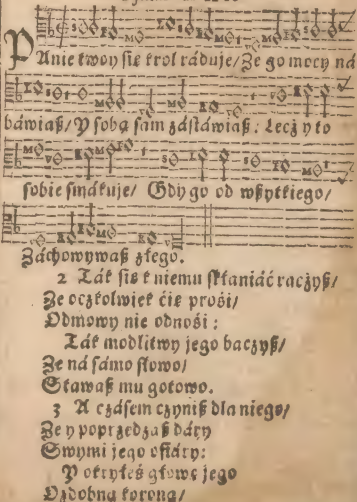 PAnie twoy się krol ráduje/ Że go mocy ná
báwiaß/ Y sobą sam zástáwiaß: Lecż y to
sobie smákuje/ Gdy go od wßytkiego/
Záchowywaß złego.
2 Ták się k niemu skłaniáć racżyß/
Że ocżkolwiek ćię prośi/
Odmowy nie odnośi:
Ták modlitwy jego bacżyß/
Że ná sámo słowo/
Stawaß mu gotowo.
3 A cżásem cżyniß dla niego/
Że y poprzedzaß dáry
Swymi jego ofiáry:
Y okryłeś głowę jego
Ozdobną koroną/